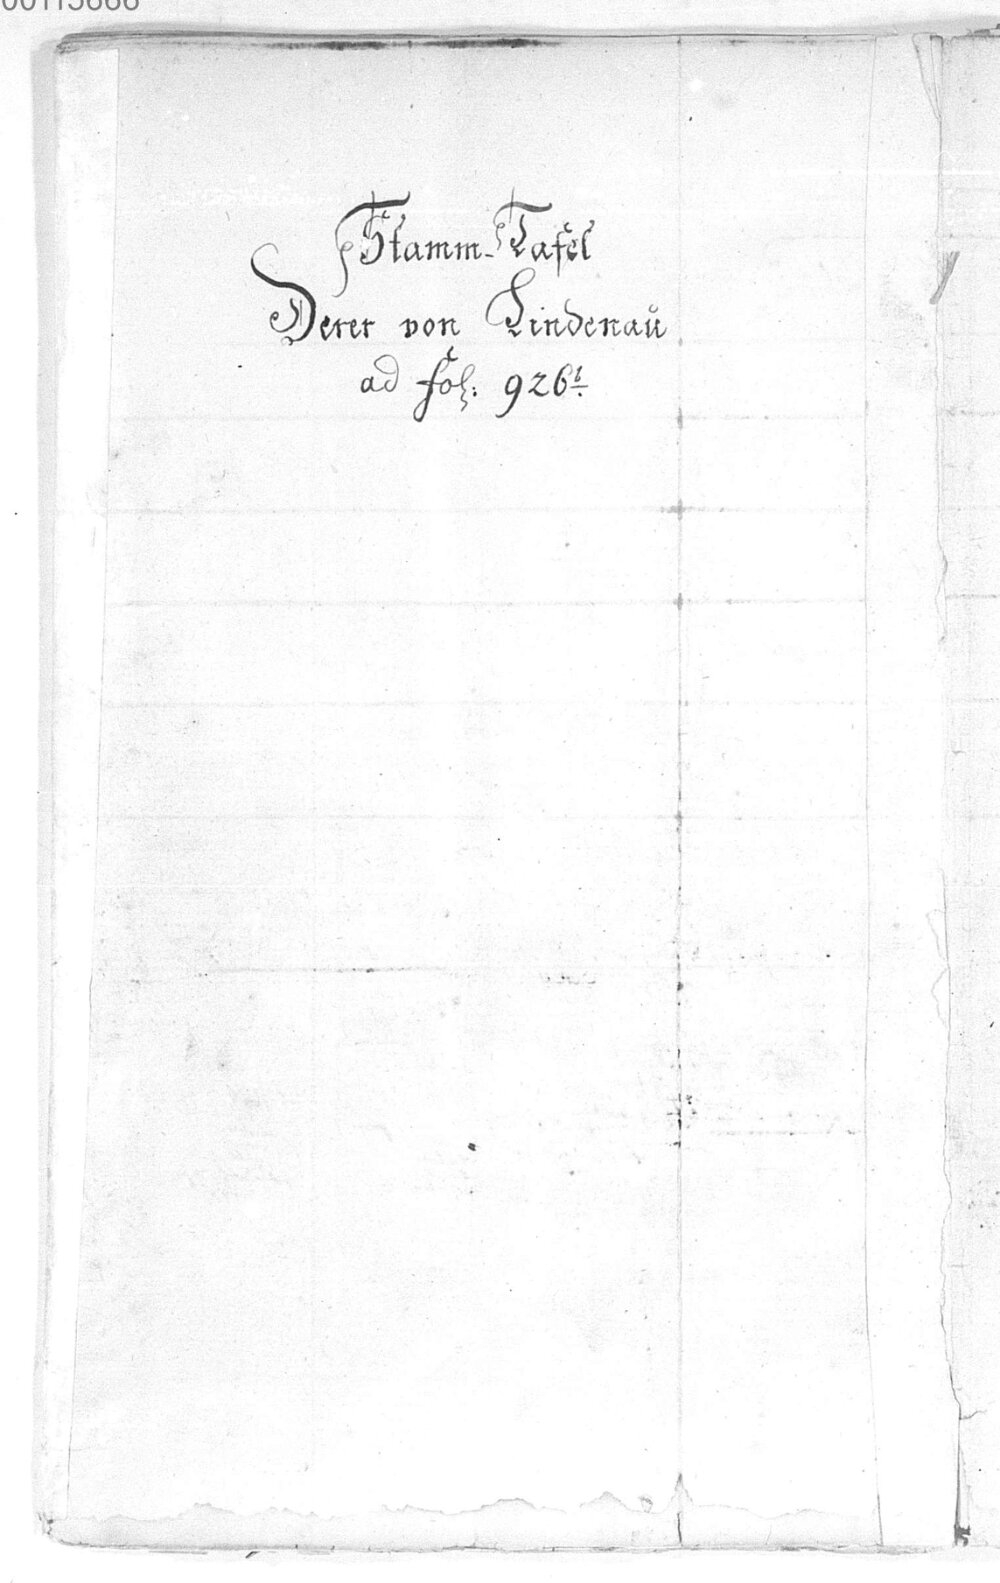 00115666
Stamm-Tafel
Derer von Lindenaü
ad fol: 926b.